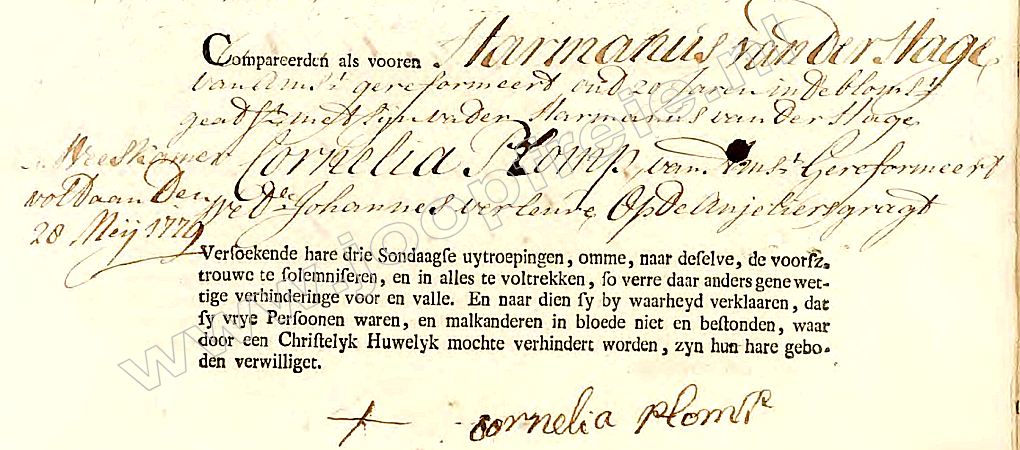 Compareerden als vooren Harmanus van der Hage
van Amst gereformeert oud 20 Jaren in de blomst
geadst met sijn vader Harmanus van der Hage
Cornelia Plomp, van Amst Gereformeert
wede Johannes verleure Op De Anjeliersgragt
Weeskamer
voldaan Den
28 Meij 1779
Versoekende hare drie Sondaagse uytroepingen, omme, naar deselve, de voorsz.
trouwe te solemniseren, en in alles te voltrekken, so verre daar anders gene wet-
tige verhinderinge voor en valle. En naar dien sy by waarheyd verklaaren, dat
sy vrye Persoonen waren, en malkanderen in bloede niet en bestonden, waar
door een Christelyk Huwelyk mochte verhindert worden, zyn hun hare gebo-
den verwilliget.
cornelia plomp
www.joopreie.nl